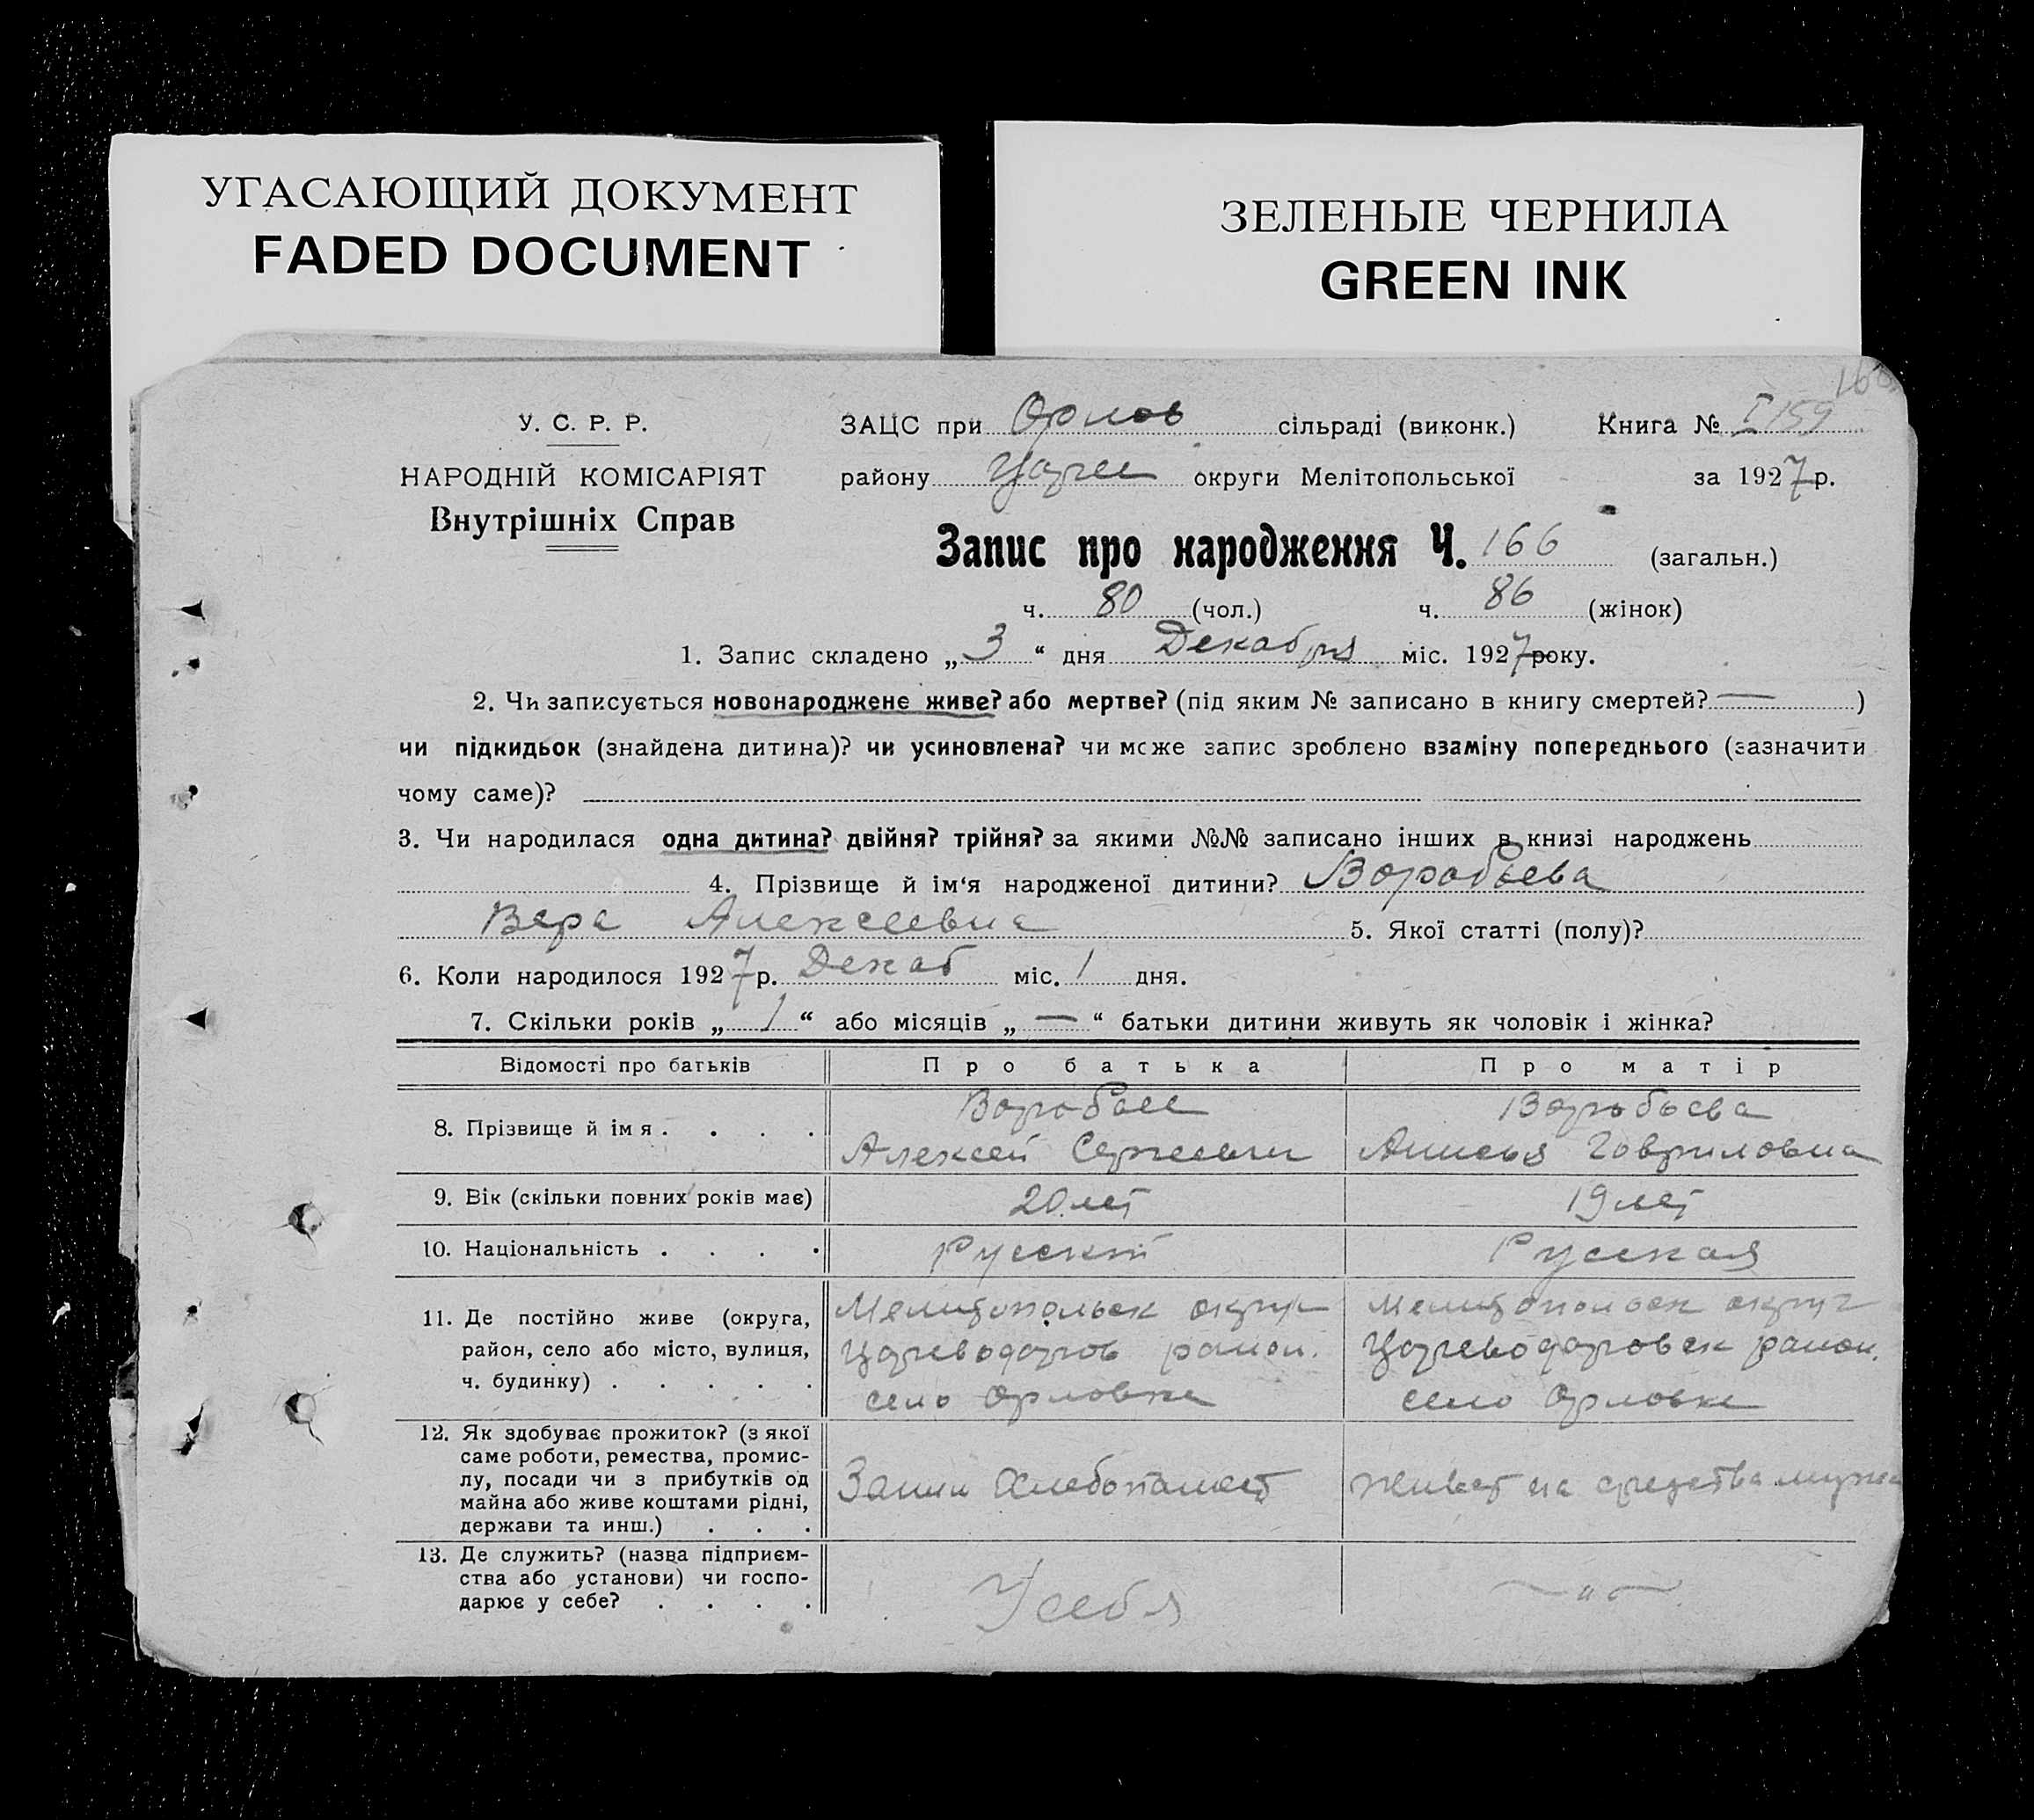 УГАСАЮЩИЙ ДОКУМЕНТ
FADED DOCUMENT
ЗЕЛЕНЫЕ ЧЕРНИЛА
GREEN INK
У. С. Р. Р.
НАРОДНІЙ КОМІСАРІЯТ
Внутрішніх Справ
ЗАЦС при Орлов сільраді (виконк.) Книга № I 159
району округи Мелітопольської за 1927 р.
Запис про народження Ч. 166 (загальн.)
ч. 80 (чол.) ч. 86 (жінок)
1. Запис складено „ 3 “ дня Декабря міс. 1927 року.
2. Чи записується новонароджене живе? або мертве? (під яким № записано в книгу смертей? — )
чи підкидьок (знайдена дитина)? чи усиновлена? чи може запис зроблено взаміну попереднього (зазначити
чому саме)?
3. Чи народилася одна дитина? двійня? трійня? за якими №№ записано інших в книзі народжень
4. Прізвище й ім‘я народженої дитини? Воробьева
Вера Алексеевна 5. Якої статті (полу)?
6. Коли народилося 1927 р. Декаб міс. 1 дня.
7. Скільки років „ 1 “ або місяців „ — “ батьки дитини живуть як чоловік і жінка?
Відомості про батьків Про батька Про матір
8. Прізвище й імя . . . . Воробьева
Алексей Анисья Гавриловна
9. Вік (скільки повних років має) 20 лет 19 лет
10. Національність . . . . Русский Русская
11. Де постійно живе (округа, Мелитопольск округ Мелитопольск округ
район, село або місто, вулиця, Цареводаров район. Цареводаровск район.
ч. будинку) . . . . . село Орловка село Орловке
12. Як здобуває прожиток? (з якої
саме роботи, ремества, промис-
лу, посади чи з прибутків од Хлебопашест живет на средства мужа
майна або живе коштами рідні,
держави та инш.) . . .
13. Де служить? (назва підприєм-
ства або установи) чи госпо- У себя —"—
дарює у себе? . . . .